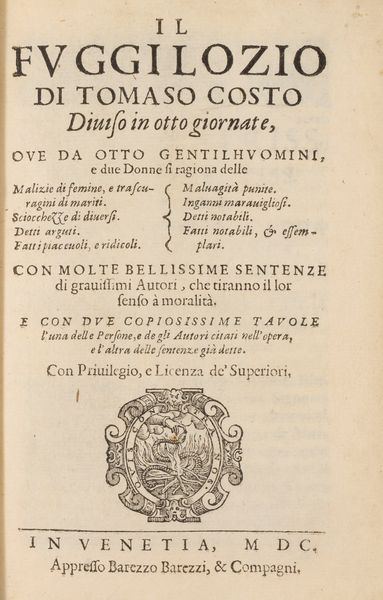 IL
FVGGILOZIO
DI TOMASO COSTO
Diuiso in otto giornate,
OVE DA OTTO GENTILHVOMINI,
e due Donne si ragiona delle
Malizie di femine, e trascu-
ragini di mariti.
Sciocchezze di diuersi.
Detti arguti.
Fatti piaceuoli, e ridicoli.
Maluagità punite.
Inganni marauigliosi.
Detti notabili.
Fatti notabili, & essem-
plari.
CON MOLTE BELLISSIME SENTENZE
di grauissimi Autori, che tiranno il lor
senso à moralità.
E CON DVE COPIOSISSIME TAVOLE
l'una delle Persone, e de gli Autori citati nell'opera,
e l'altra delle sentenze già dette.
Con Priuilegio, e Licenza de' Superiori,
IN VENETIA, M DC.
Appresso Barezzo Barezzi, & Compagni.